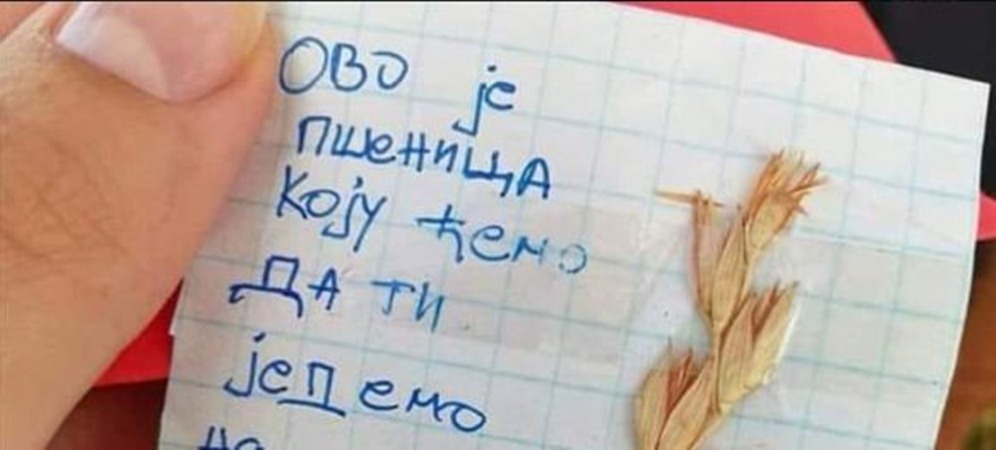 ОВО је
пшеницА
Коју ћемо
ДА ТИ
једемо
на